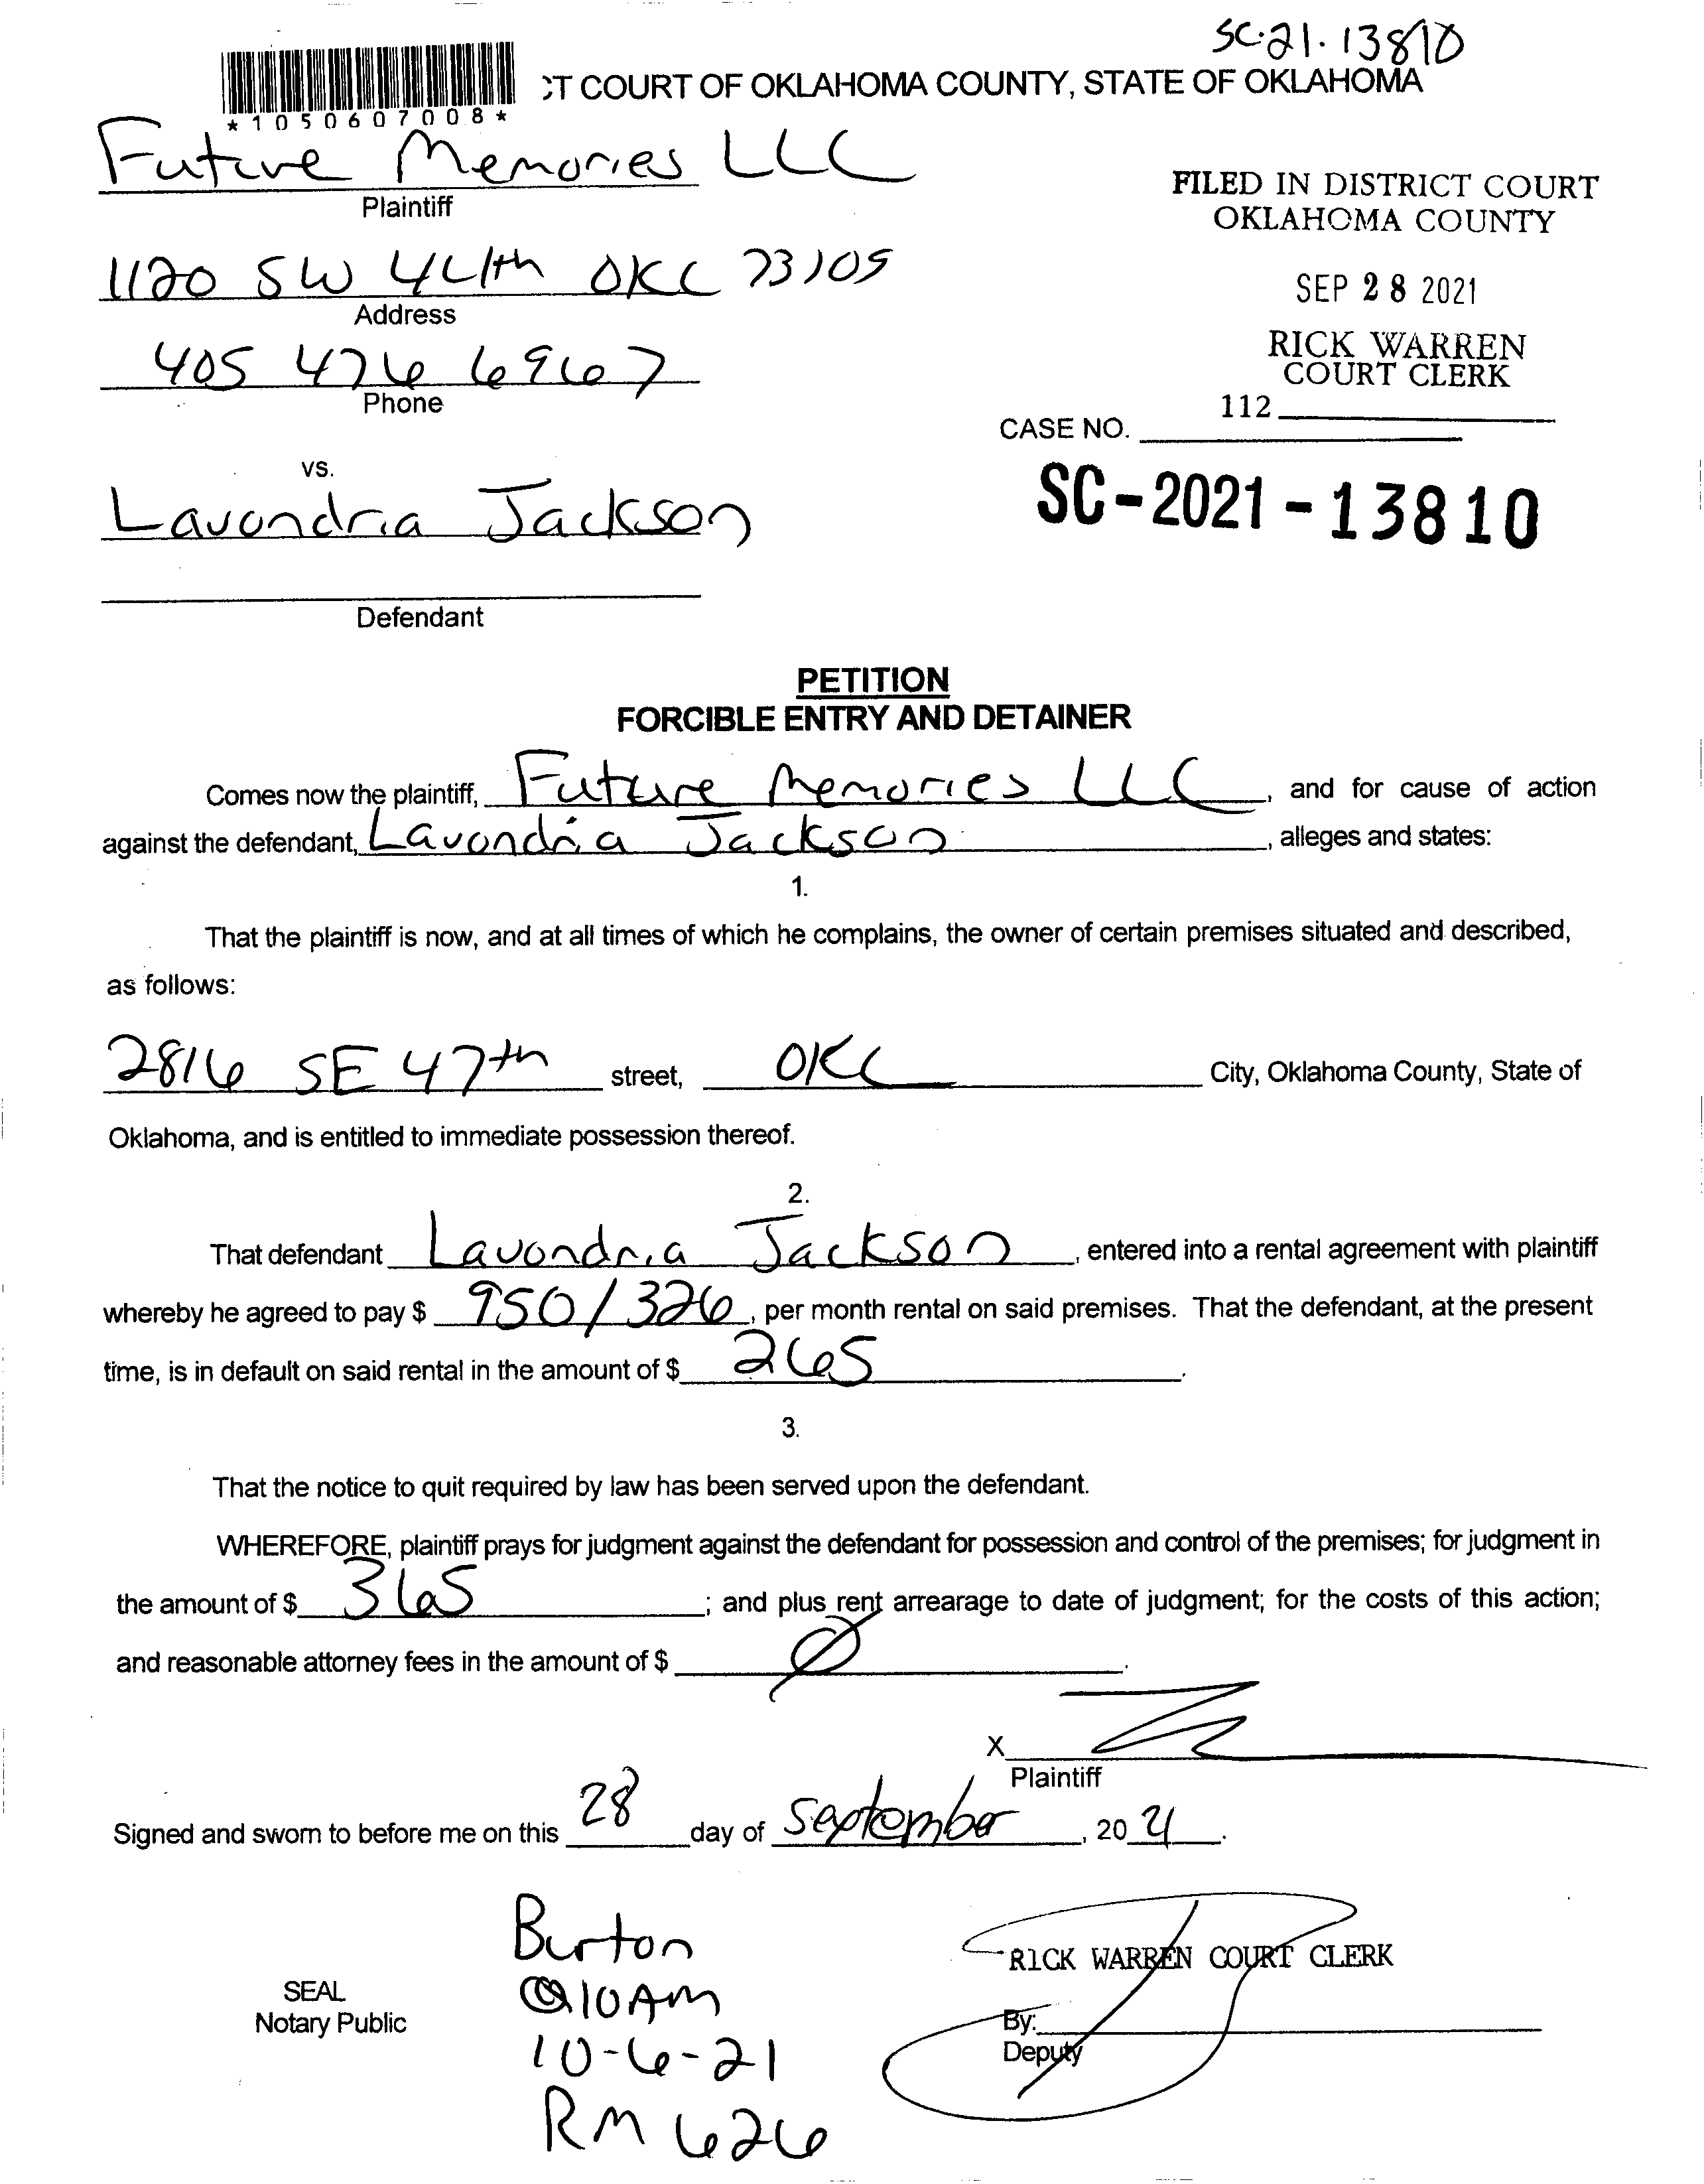 SC-21-13810
CT COURT OF OKLAHOMA COUNTY, STATE OF OKLAHOMA
*1050607008*
Future Memories LLC
Plaintiff
FILED IN DISTRICT COURT
OKLAHOMA COUNTY
1120 SW 44th OKC 73109
Address
SEP 28 2021
405 476 6967
Phone
RICK WARREN
COURT CLERK
112
CASE NO.
vs.
SC-2021-13810
Lavondria Jackson
Defendant
PETITION
FORCIBLE ENTRY AND DETAINER
Comes now the plaintiff, Future Memories LLC, and for cause of action
against the defendant, Lavondria Jackson, alleges and states:
1.
That the plaintiff is now, and at all times of which he complains, the owner of certain premises situated and described,
as follows:
2816 SE 47th street, OKC City, Oklahoma County, State of
Oklahoma, and is entitled to immediate possession thereof.
2.
That defendant Lavondria Jackson, entered into a rental agreement with plaintiff
whereby he agreed to pay $ 950/326, per month rental on said premises. That the defendant, at the present
time, is in default on said rental in the amount of $ 265.
3.
That the notice to quit required by law has been served upon the defendant.
WHEREFORE, plaintiff prays for judgment against the defendant for possession and control of the premises; for judgment in
the amount of $ 365; and plus rent arrearage to date of judgment; for the costs of this action;
and reasonable attorney fees in the amount of $ Ø.
X
Plaintiff
Signed and sworn to before me on this 28 day of September, 2021.
Burton
@10AM
10-6-21
RM 626
SEAL
Notary Public
RICK WARREN COURT CLERK
By:
Deputy